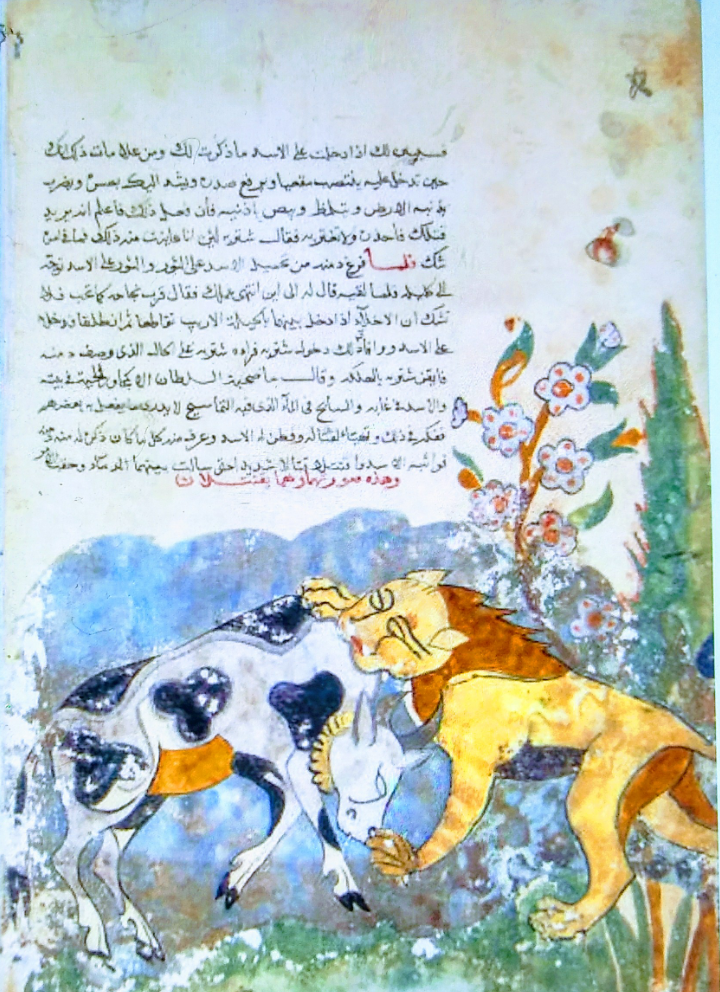 فسيتبين لك اذا دخلت على الاسد ما ذكرت لك ومن علامات ذلك انك
حين تدخل عليه ينتصب مقعيا ويرفع صدره ويشد اليك بصره ويضرب
بذنبه الارض و يتلمظ و يبص باذنيه فان فعل ذلك فاعلم انه يريد
قتلك فاحذره ولا تغتر به فقال شتربه لئن انا عاينت منه ذلك فما في امره
شك فلما فرغ دمنه من تحميل الاسد على الثور والثور على الاسد توجه
الى كليله فلما لقيه قال له الى اين انتهى عملك فقال قرب نجاحه كما تحب فلا
تشك ان الاخلاء اذا دخل بينهما الاريب تقاطعا ثم انطلقا فدخلا
على الاسد ووافق ذلك دخول شتربه فراه شتربه على الحال الذى وصف دمنه
فايقن شتربه بالهلكه وقالــ ما صحبة السلطان الا كمجاور الحية فى بيته
والاسد فى غابه والسابح فى الماء الذى فيه التماسيح لا يدرى ما يفعل به بعضهم
ففكر فى ذلك و تهياء لقتاله وفطن له الاسد وعرف منه كل ما كان ذكره له دمنه
فواثبه الاسد واقتتلا قتالا شديدا حتى سالت بينهما الدماء
وهذه صورتهما وهما يقتتلان